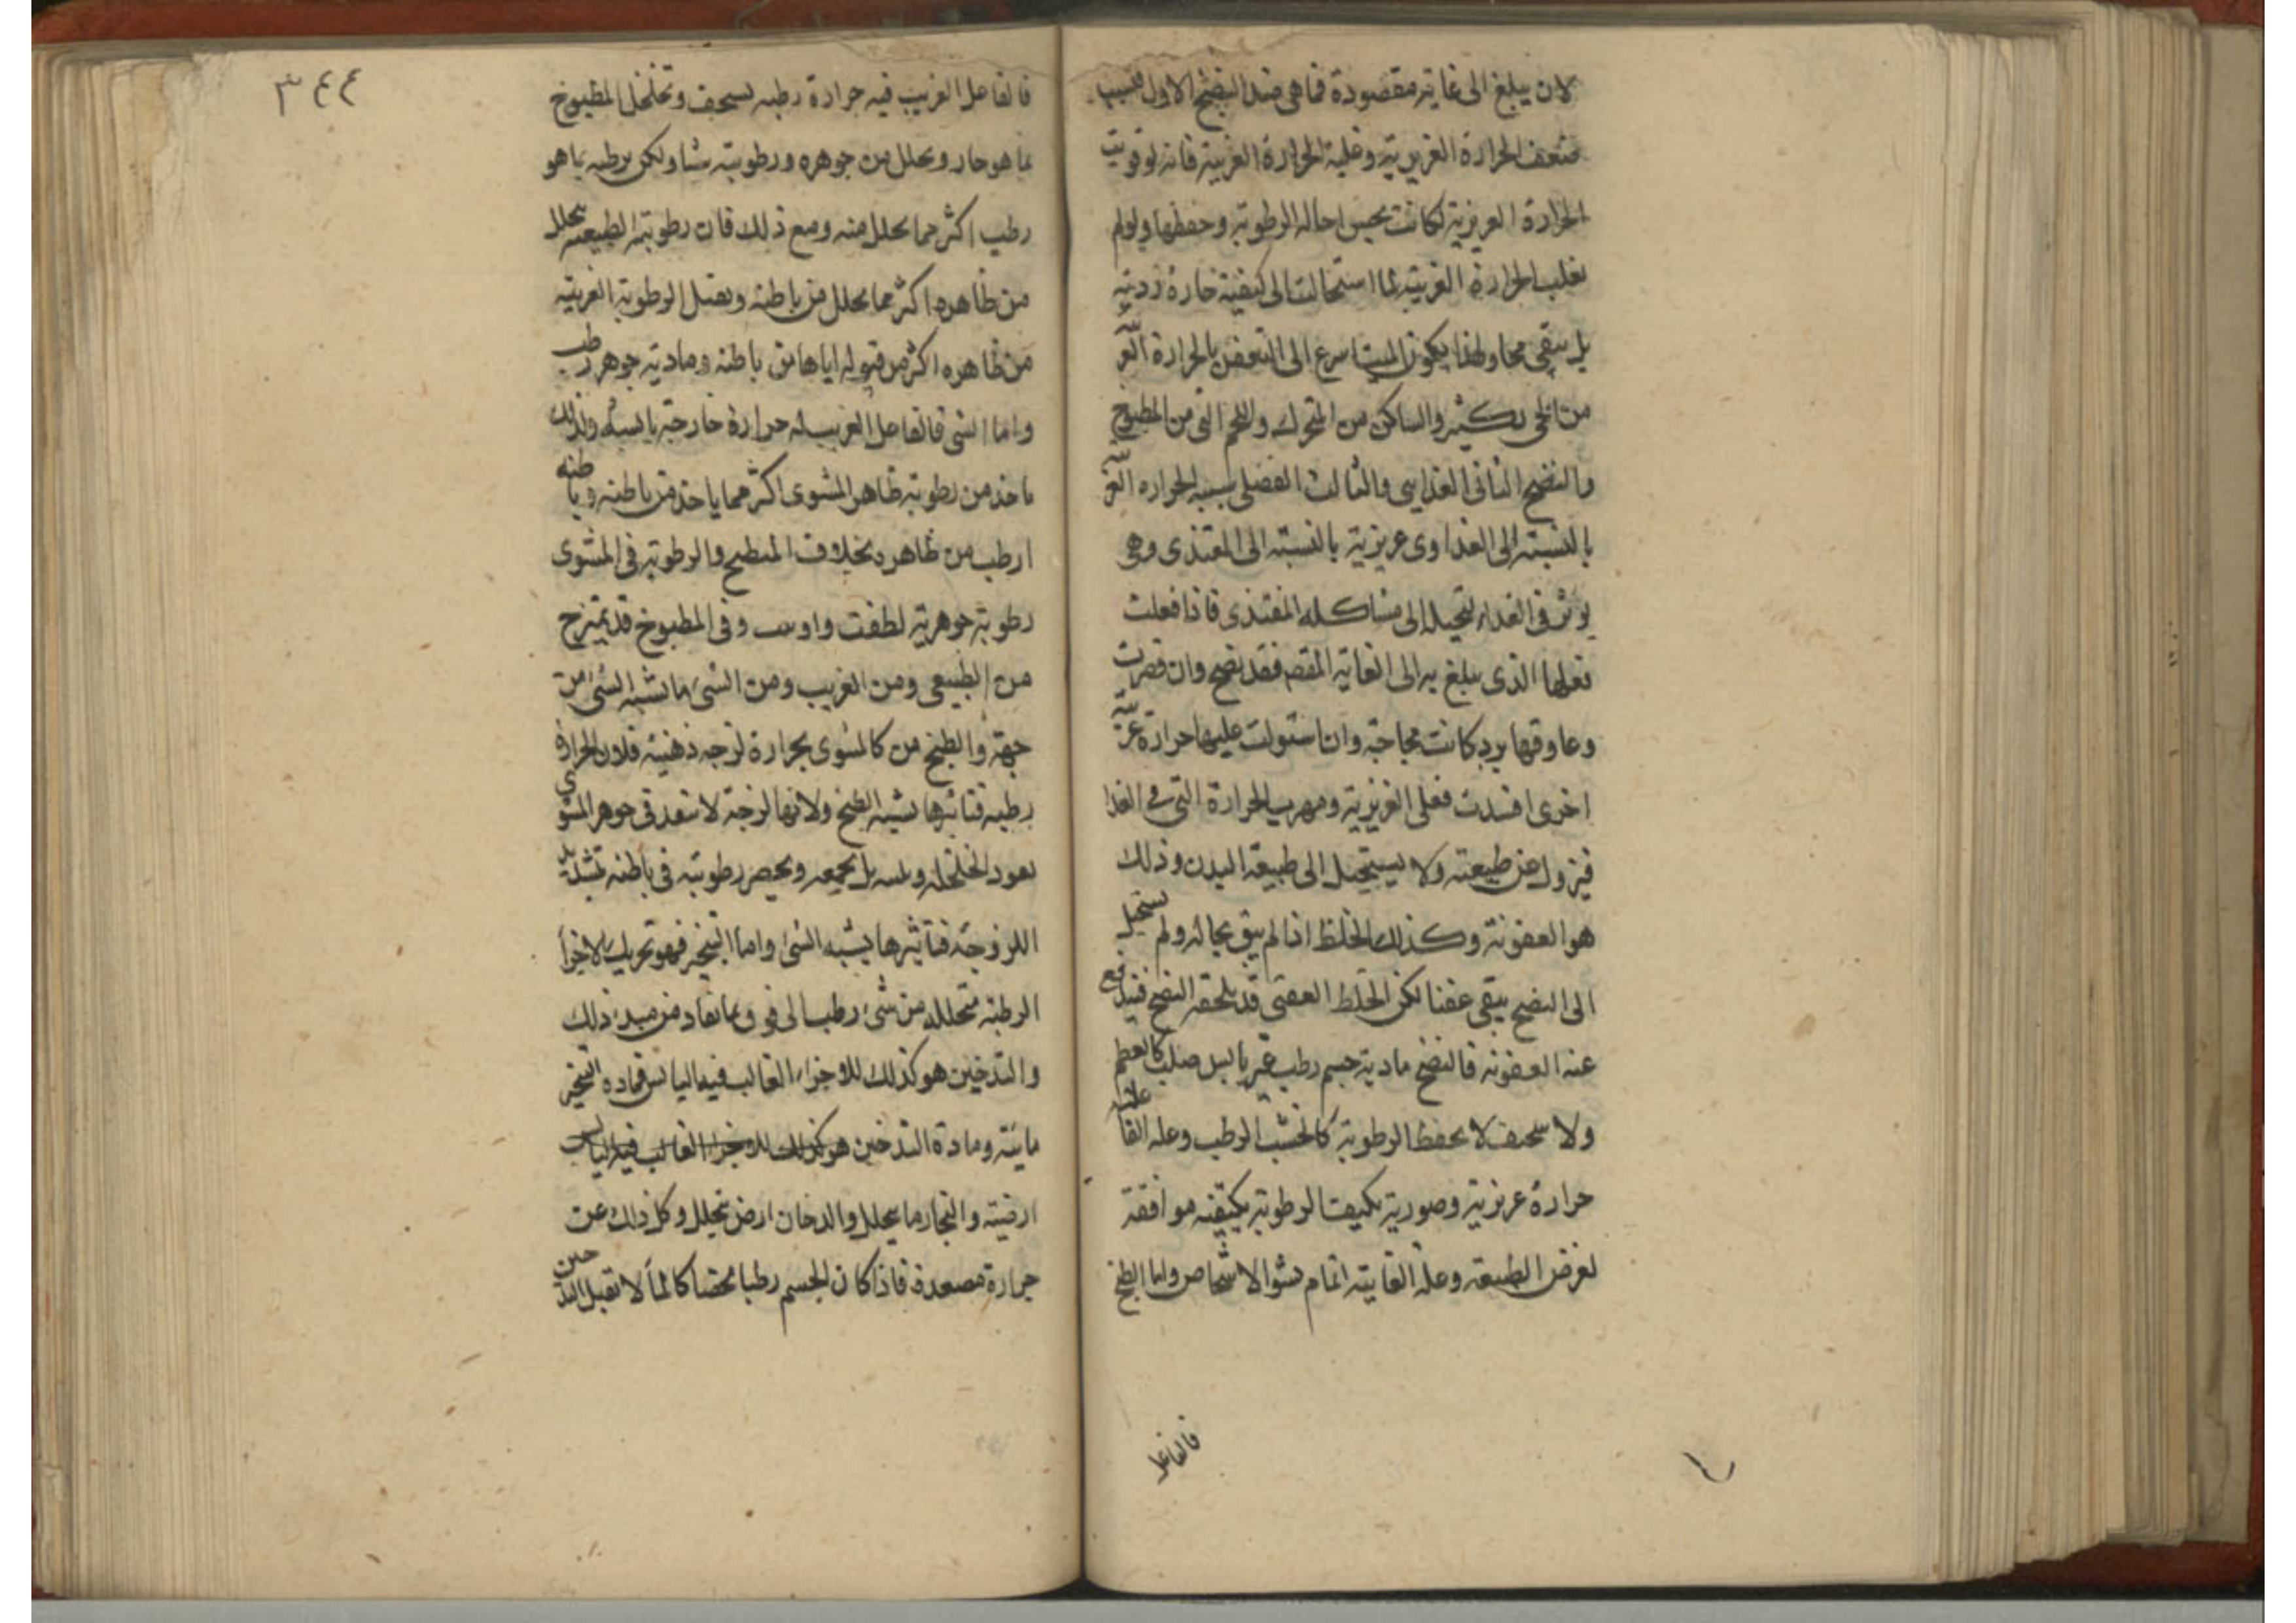 لان يبلغ الى غاية مقصودة فما هى ضد النضج الاول فسبب
ضعف الحرارة الغريزية وغلبة الحرارة الغريبة فانه لو قويت
الحرارة الغريزية لكانت يحسن احالة الرطوبة وحفظها ولو لم
تغلب الحرارة الغريبة لما استحالت الى كيفية حارة ردية
بل يبقى فجا ولهذا يكون الميت اسرع الى التعفن بالحرارة الغريبة
من الحى بكثير والساكن من المتحرك واللحم النى من المطبوخ
والنضج الثانى الغذايى والثالث الفضلى بسبب الحراره الغريبة
بالنسبة الى الغذا وى غريزية بالنسبة الى المغتذى وهى
يوثر فى الغداء لتحيله الى مشاكله المغتذى فاذا فعلت
فعلها الذى يبلغ به الى الغاية المقصم فقد نضج وان قصرت
وعاوقها برد كانت فجاجة وان استولت عليها حرارة غريبة
اخرى افسدت فعلى الغزيزية ومهرب الحرارة التى فى الغذا
فيزول عن طبيعته ولا يستحيل الى طبيعة البدن وذلك
هو العفونة وكذلك الخلط اذا لم يبق بحاله ولم يستحيل
الى النضج يبقى عفنا لكن الخلط العفنى قد يلحقه النضج فيندفع
عنه العفونه فالنضج مادية جسم رطب غير يابس صلب كالعظم
ولا سخيف لا يحفظ الرطوبة كالخشب الرطب وعله الفاعلية
حرارة غريزية وصورية تكيف الرطوبة بكيفية موافقة
لغرض الطبيعة وعلة الغايية اتمام نشو الاشخاص واما الطبخ
فالفاعل
٣٤٤
فالفاعل الغريب فيه حرارة رطبه تسخف وتخلخل المطبوخ
بما هو حار ويحلل من جوهره ورطوبته شيا ولكن يرطبه بما هو
رطب اكثر مما يحلل منه ومع ذلك فان رطوبته الطبيعيه يتحلل
من ظاهره اكثر مما يحلل من باطنه ويقبل الرطوبة الغريبة
من ظاهره اكثر من قبوله اياها من باطنه ومادية جوهر رطب
واما الشى فالفاعل الغريب له حرارة خارجة يابسة ولذلك
ياخذ من رطوبة ظاهر المشوى اكثر مما ياخذ من باطنه وباطنه
ارطب من ظاهره بخلاف المنطبخ والرطوبة فى المشوى
رطوبة جوهرية لطفت واوسب وفى المطبوخ قد يمتزج
من الطبيعى ومن الغريب ومن الشى ما يشبه الشى من
جهة والطبخ من كالمشوى بحرارة لزجه دهنية فلان الحرارة
رطبه فتاثيرها يشبه الطبخ ولانها لزجة لا تنفد فى جوهر المشوى
نفود الخلخله بل يجمعه ويحصر رطوبته فى باطنه بتشديد
اللزوجة فتاثيرها يشبه الشى واما التبخير فهو تحريك الاجزا
الرطبة متحللة من شى رطب الى فوق بما نفاد من مبدء ذلك
والتدخين هو كذلك للاجزاء الغالب فيها اليابس فماده التبخير
مايية ومادة التدخين هو كذلك للاجزاء الغالب فيه اليابس
ارضية والبخار ما يتحلل والدخان ارض يتحلل وكل ذلك عن
حرارة مصعدة فاذا كان الجسم رطبا محضا كالماء لا تقبل التدخين